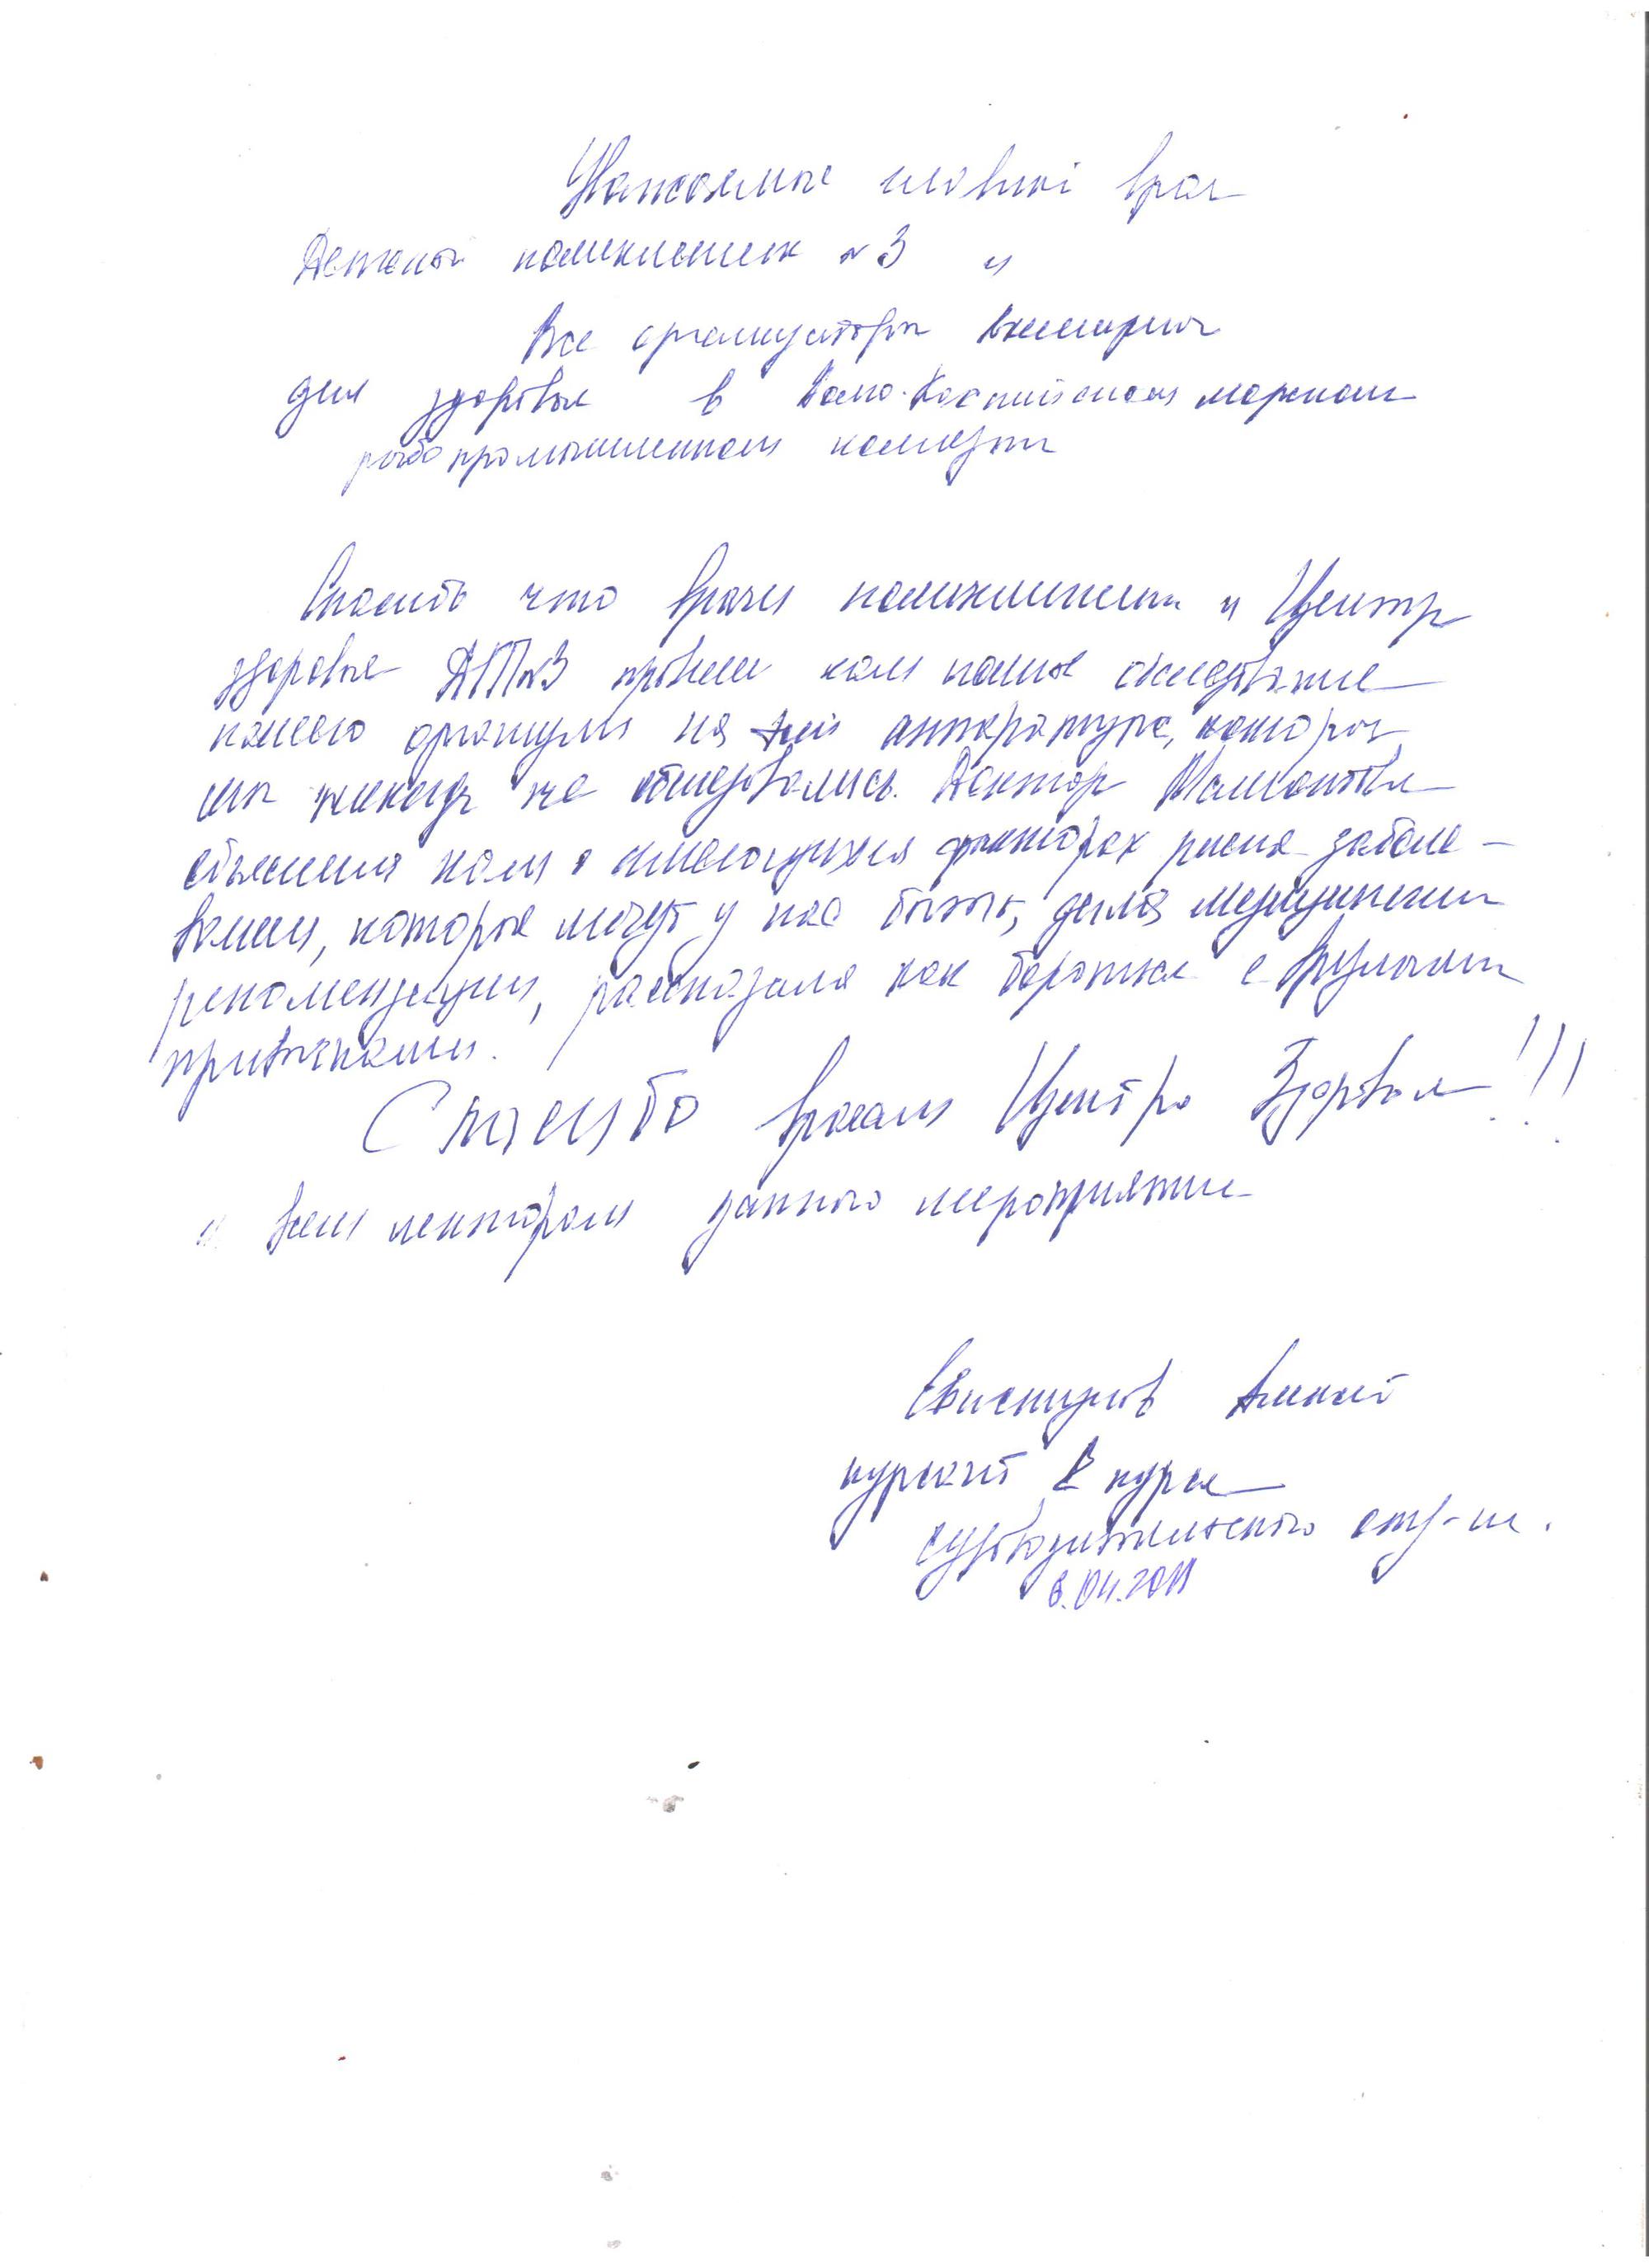 Уважаемые главный врач
Детской поликлиники №3 и
Все организаторы
дня здоровья в Волго-Каспийском морском
рыбопромышленном колледжи
Спасибо что врачи поликлиники и Центр
здоровья ДП№3 провели нам полное обследование
нашего организма на аппаратуре, которой
мы никогда не обследовались. Доктор
объяснила нам о имеющихся факторах риска заболе-
ваний, которые могут у нас быть, дала медицински
рекомендации, рассказала как бороться с вредными
привычками.
Спасибо врачам Центра Здоровья!!!
и всем лекторам данного мероприятие
курсант 2 курса
судоводительского отд-ия.
6.04.2011